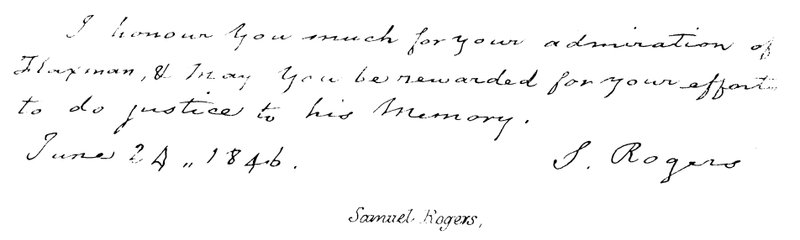 I honour you much for your admiration of
Flaxman, & may you be rewarded for your efforts
to do justice to his Memory.
June 24,, 1846. S. Rogers
Samuel Rogers,